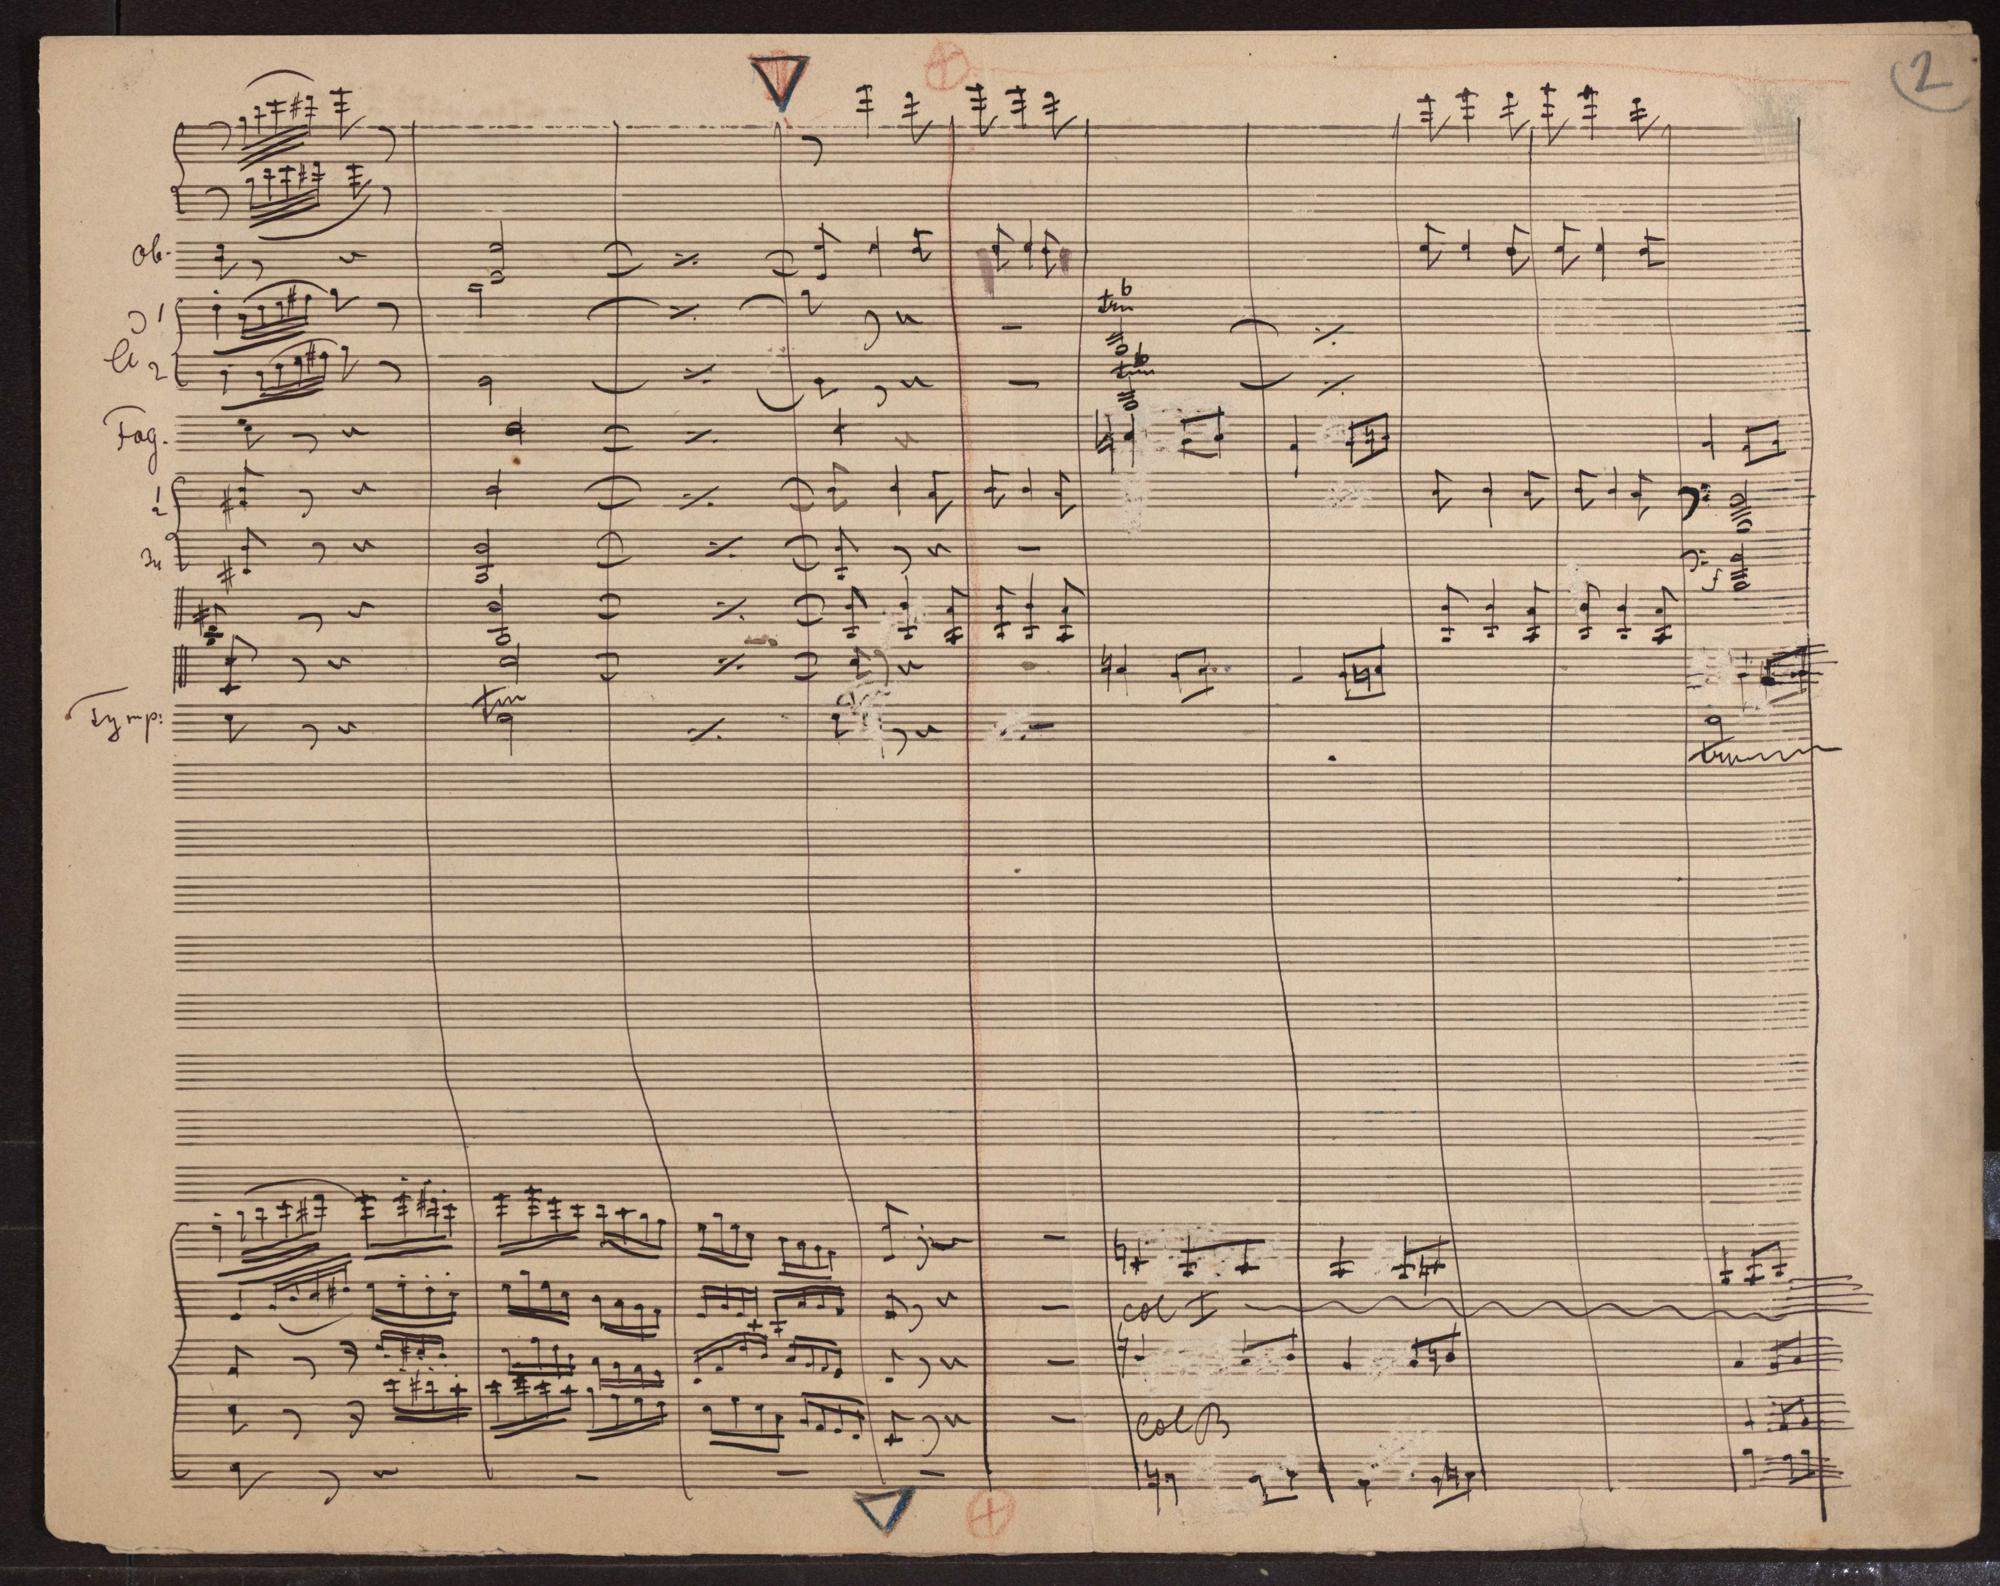 2
Ob.
1
Cl 2
Fog.
1
2
tr b
tr b
f
Tymp:
tr
tr
col I
col B